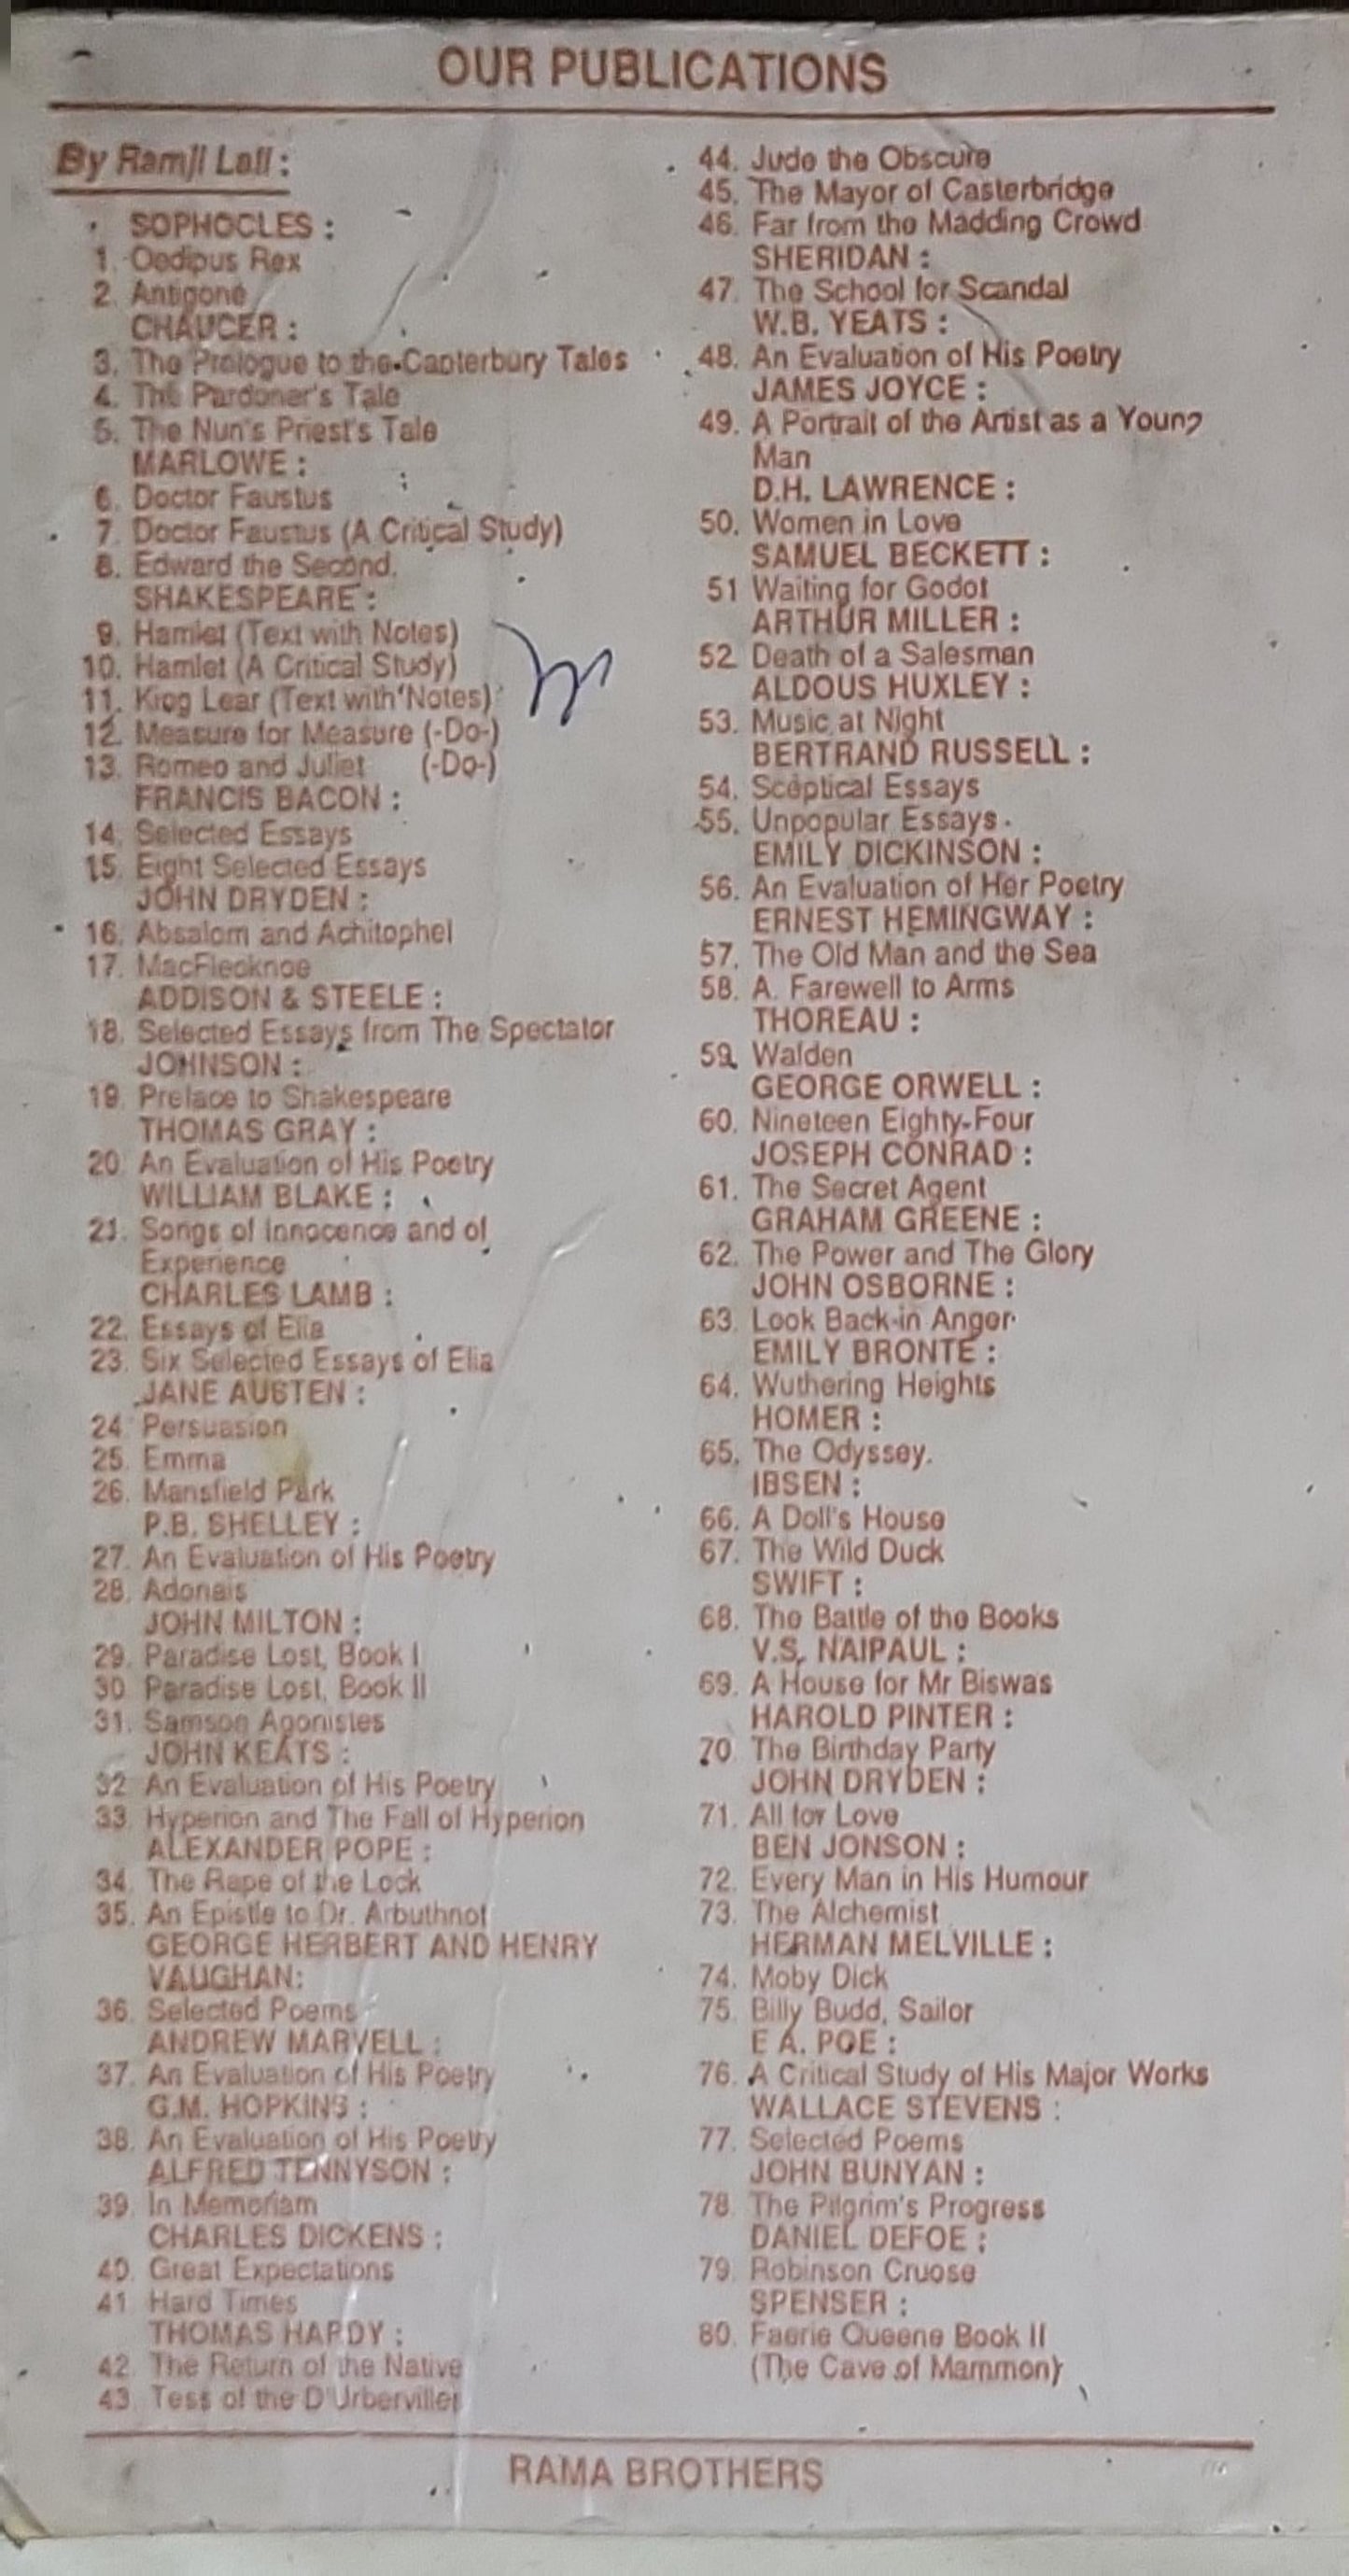 OUR PUBLICATIONS
By Ramji Lall :
SOPHOCLES :
1. Oedipus Rex
2. Antigone
CHAUCER :
3. The Prologue to the Canterbury Tales
4. The Pardoner's Tale
5. The Nun's Priest's Tale
MARLOWE :
6. Doctor Faustus
7. Doctor Faustus (A Critical Study)
8. Edward the Second.
SHAKESPEARE :
9. Hamlet (Text with Notes)
10. Hamlet (A Critical Study)
11. King Lear (Text with Notes)
12. Measure for Measure (-Do-)
13. Romeo and Juliet (-Do-)
FRANCIS BACON :
14. Selected Essays
15. Eight Selected Essays
JOHN DRYDEN :
16. Absalom and Achitophel
17. MacFlecknoe
ADDISON & STEELE :
18. Selected Essays from The Spectator
JOHNSON :
19. Preface to Shakespeare
THOMAS GRAY :
20. An Evaluation of His Poetry
WILLIAM BLAKE :
21. Songs of Innocence and of
Experience
CHARLES LAMB :
22. Essays of Elia
23. Six Selected Essays of Elia
JANE AUSTEN :
24. Persuasion
25. Emma
26. Mansfield Park
P.B. SHELLEY :
27. An Evaluation of His Poetry
28. Adonais
JOHN MILTON :
29. Paradise Lost, Book I
30. Paradise Lost, Book II
31. Samson Agonistes
JOHN KEATS :
32. An Evaluation of His Poetry
33. Hyperion and The Fall of Hyperion
ALEXANDER POPE :
34. The Rape of the Lock
35. An Epistle to Dr. Arbuthnot
GEORGE HERBERT AND HENRY
VAUGHAN:
36. Selected Poems
ANDREW MARVELL :
37. An Evaluation of His Poetry
G.M. HOPKINS :
38. An Evaluation of His Poetry
ALFRED TENNYSON :
39. In Memoriam
CHARLES DICKENS :
40. Great Expectations
41. Hard Times
THOMAS HARDY :
42. The Return of the Native
43. Tess of the D'Urbervilles
44. Jude the Obscure
45. The Mayor of Casterbridge
46. Far from the Madding Crowd
SHERIDAN :
47. The School for Scandal
W.B. YEATS :
48. An Evaluation of His Poetry
JAMES JOYCE :
49. A Portrait of the Artist as a Young
Man
D.H. LAWRENCE :
50. Women in Love
SAMUEL BECKETT :
51 Waiting for Godot
ARTHUR MILLER :
52. Death of a Salesman
ALDOUS HUXLEY :
53. Music at Night
BERTRAND RUSSELL :
54. Sceptical Essays
55. Unpopular Essays
EMILY DICKINSON :
56. An Evaluation of Her Poetry
ERNEST HEMINGWAY :
57. The Old Man and the Sea
58. A. Farewell to Arms
THOREAU :
59. Walden
GEORGE ORWELL :
60. Nineteen Eighty-Four
JOSEPH CONRAD :
61. The Secret Agent
GRAHAM GREENE :
62. The Power and The Glory
JOHN OSBORNE :
63. Look Back in Anger
EMILY BRONTE :
64. Wuthering Heights
HOMER :
65. The Odyssey.
IBSEN :
66. A Doll's House
67. The Wild Duck
SWIFT :
68. The Battle of the Books
V.S. NAIPAUL :
69. A House for Mr Biswas
HAROLD PINTER :
70 The Birthday Party
JOHN DRYDEN :
71. All for Love
BEN JONSON :
72. Every Man in His Humour
73. The Alchemist
HERMAN MELVILLE :
74. Moby Dick
75. Billy Budd, Sailor
E A. POE :
76. A Critical Study of His Major Works
WALLACE STEVENS :
77. Selected Poems
JOHN BUNYAN :
78. The Pilgrim's Progress
DANIEL DEFOE :
79. Robinson Cruose
SPENSER :
80. Faerie Queene Book II
(The Cave of Mammon)
RAMA BROTHERS